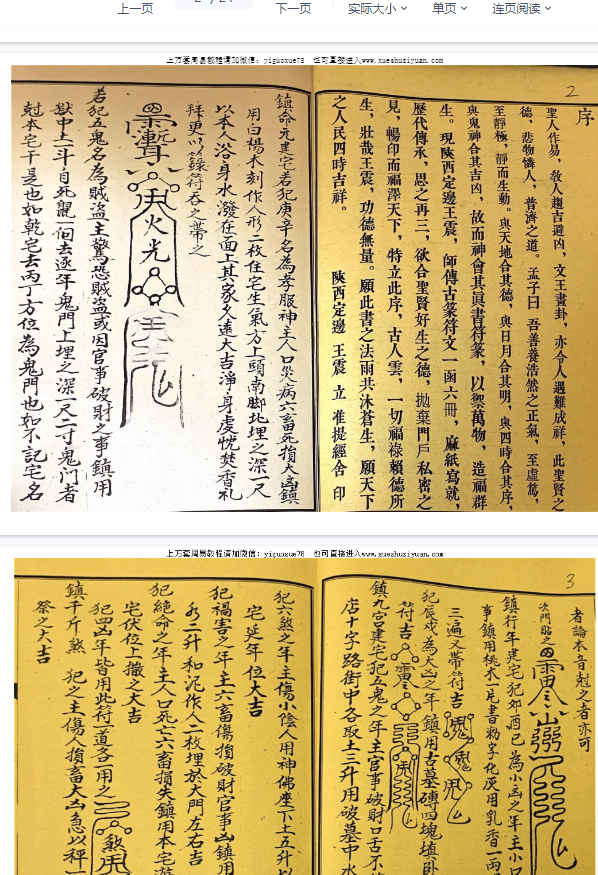 上一页
下一页
实际大小
单页
连页阅读
上万套周易教程请加微信：yiguoxue78 也可直接进入www.xueshuziyuan.com
2
序
聖人作易，敎人趨吉避凶，文王畫卦，亦令人遇難成祥，此聖賢之
德，悲物憐人，普濟之道。孟子曰 吾善養浩然之正氣，至虛篤，
至靜極，靜而生動。與天地合其德，與日月合其明，與四時合其序，
與鬼神合其吉凶，故而神會其眞書符篆，以禦萬物，造福群
生。現陝西定邊王震，師傳古篆符文一函六冊，麻紙寫就，
歷代傳承，思之再三，欲合聖賢好生之德，拋棄門戶私密之
見，暢印而福澤天下，特立此序，古人雲，一切福祿賴德所
生，壯哉王震，功德無量。願此書之法雨共沐蒼生，願天下
之人民四時吉祥。
陝西定邊 王震 立 准提經舍 印
鎮命元建宅若犯庚辛名為孝服神主人口災病六畜死損大凶鎮
用白楊木刻作人形二枚住宅生氣方上頭南脚北埋之深一尺
以本人浴身水潑在面上其家久遠大吉淨身虔忱焚香礼
拜更以錄符吞之帶之
火光
若犯五鬼名為賊盜主驚恐賊盜或因官事破財之事鎮用
獄中土一斗自死鼠一個去逐年鬼門上埋之深一尺二寸鬼门者
尅本宅干是也如乾宅去丙丁方位為鬼門也如不記宅名
上万套周易教程请加微信：yiguoxue78 也可直接进入www.xueshuziyuan.com
3
者論本音尅之者亦可
鎮行年建宅犯郊酉已為小凶之年主小口
事鎮用桃木一片書粉字化灰用乳香一両
三遍又帶符吉
犯辰戌為大凶之年鎮用古墓磚四塊填卧
符吉
鎮九宫建宅犯五鬼之年主官事破財口舌不
店十字路街中各取土三升用破墓中水
犯六煞之年主傷小陰人用神佛座下土五升以
宅延年位大吉
犯禍害之年主六畜傷損破財官事凶鎮用
水二升和泥作人二枚埋於大門左右吉
犯絕命之年主人口死亡六畜損失鎮用本宅
宅伏位上撒之大吉
犯四凶年皆用此符一道各一用之
鎮千斤煞 犯之主傷人損畜大凶急以秤一
祭之大吉